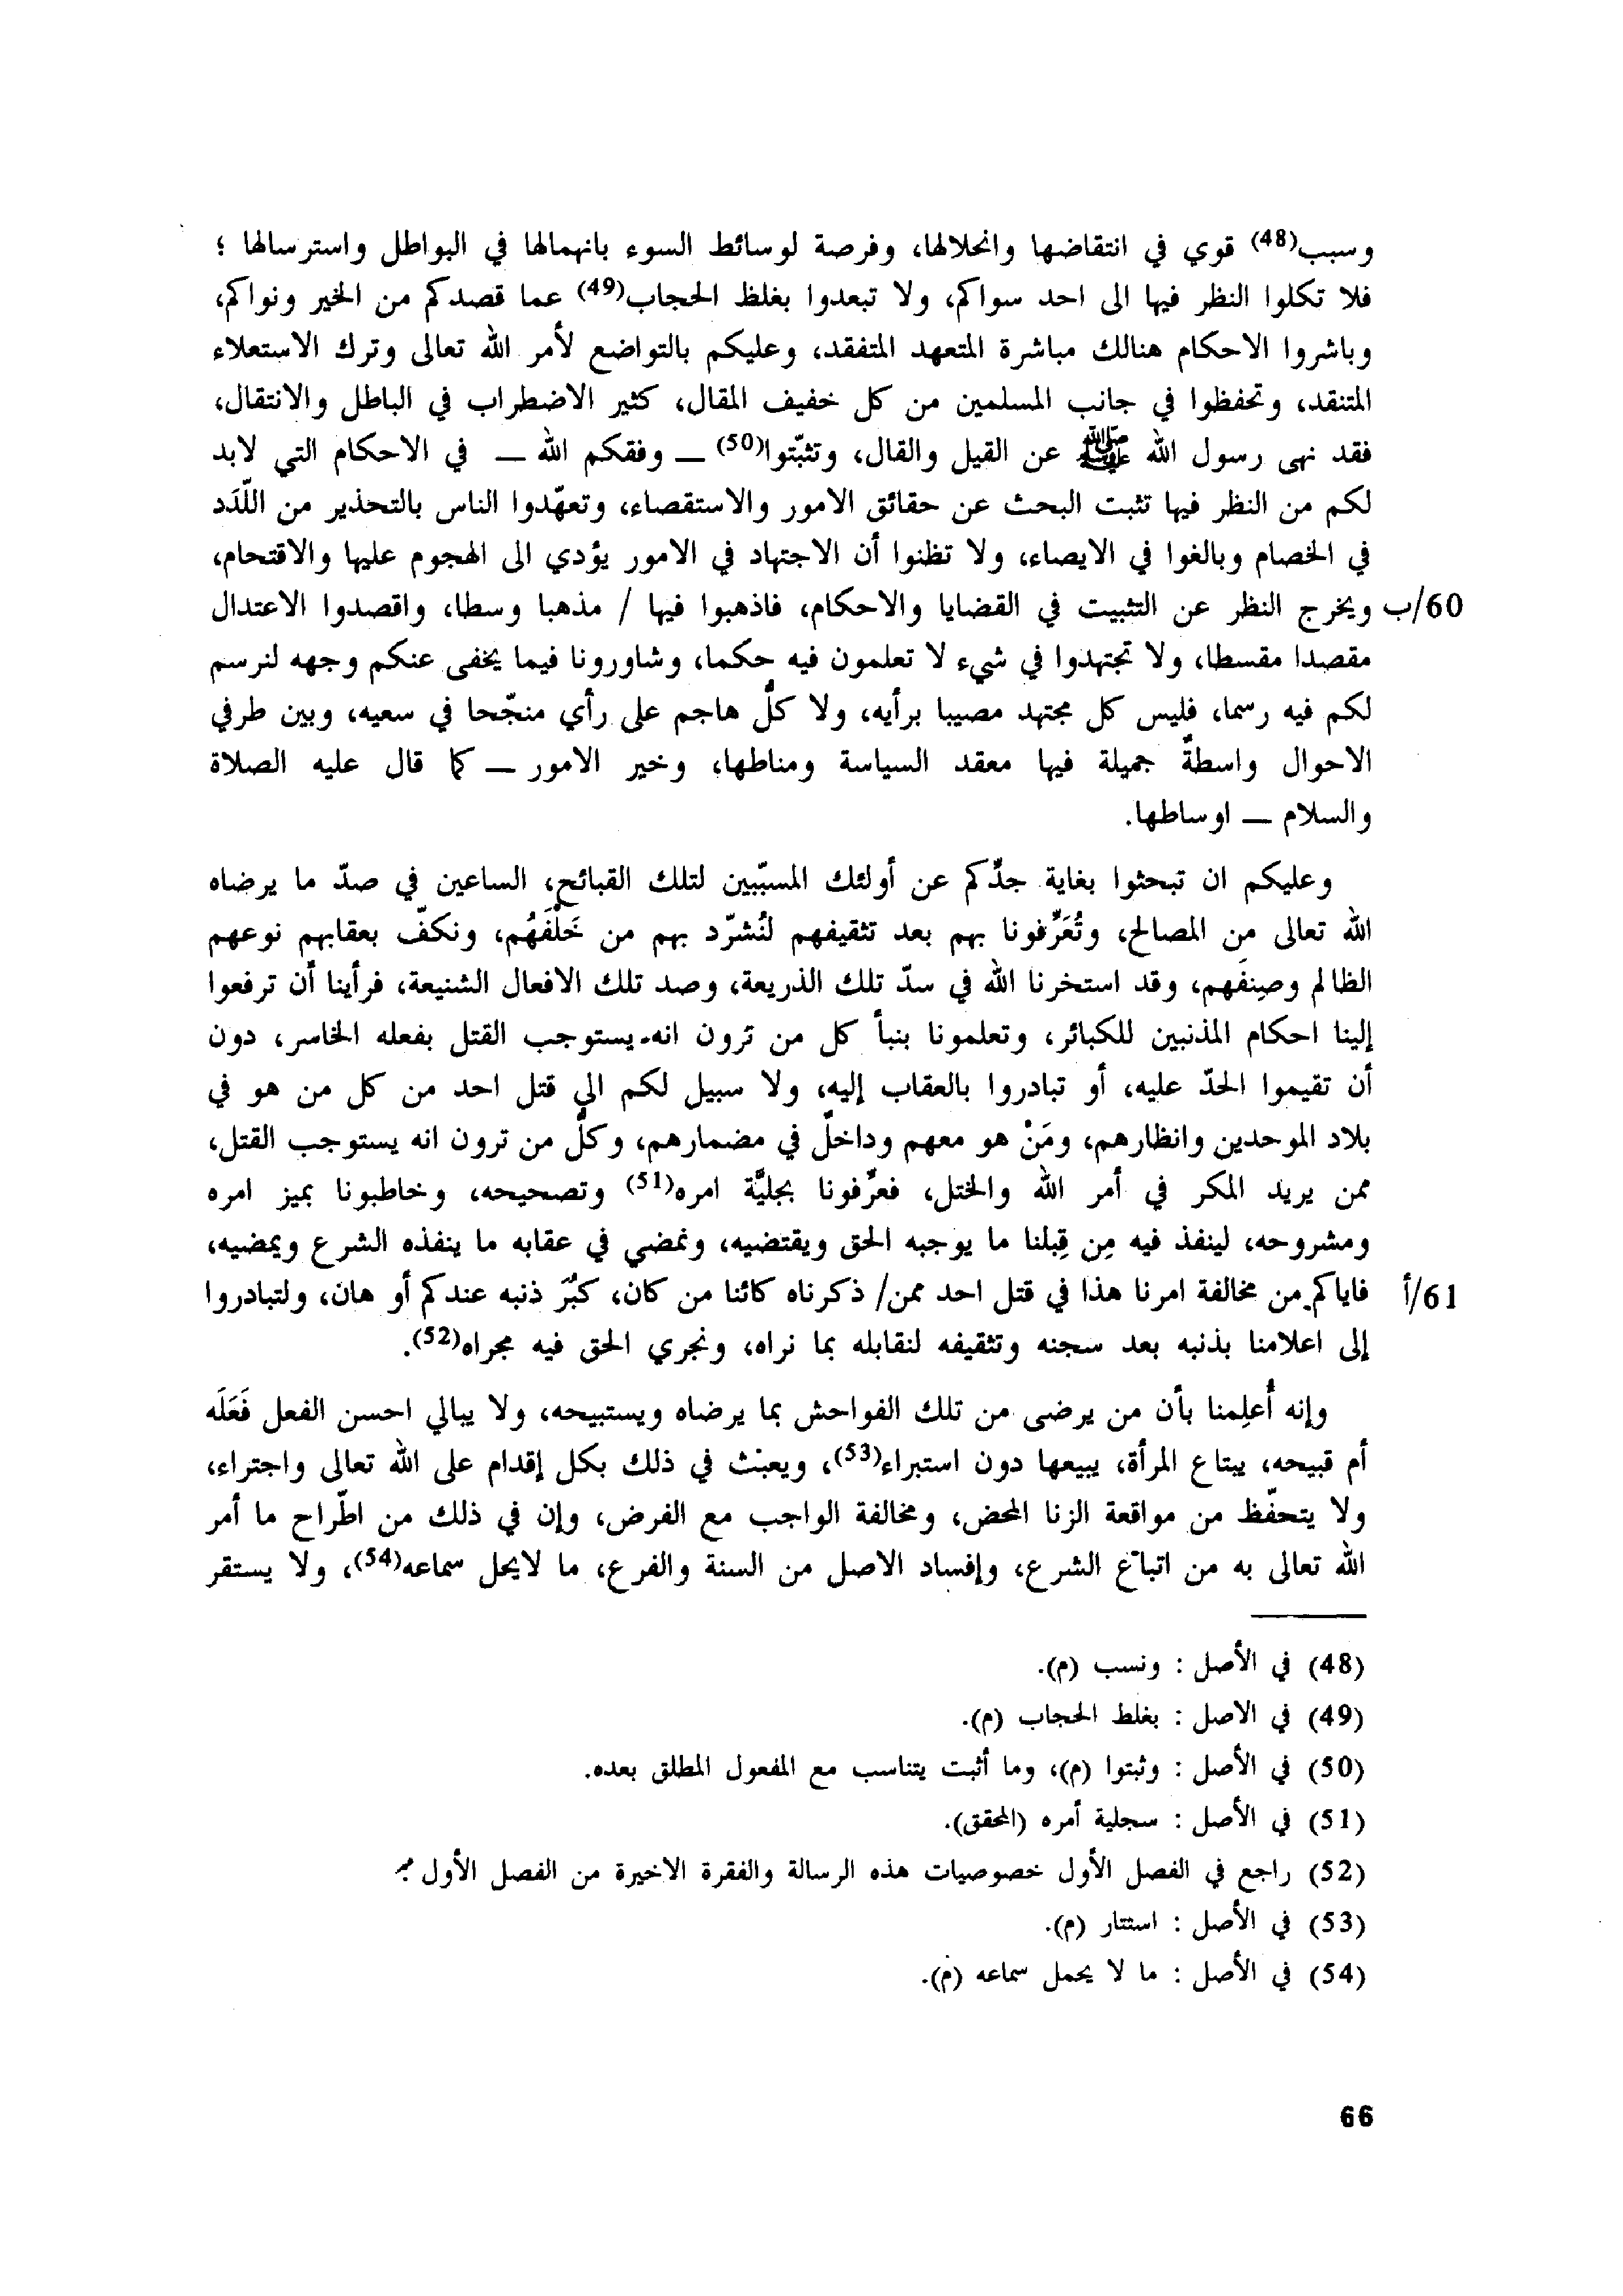 وسبب(48) قوي في انتقاضها وانحلالها، وفرصة لوسائط السوء بانهمالها في البواطل واسترسالها ؛
فلا تكلوا النظر فيها الى احد سواكم، ولا تبعدوا بغلظ الحجاب(49) عما قصدكم من الخير ونواكم،
وباشروا الاحكام هنالك مباشرة المتعهد المتفقد، وعليكم بالتواضع لأمر الله تعالى وترك الاستعلاء
المتنقد، وتحفظوا في جانب المسلمين من كل خفيف المقال، كثير الاضطراب في الباطل والانتقال،
فقد نهى رسول الله ﷺ عن القيل والقال، وتثبّتوا(50) — وفقكم الله — في الاحكام التي لابد
لكم من النظر فيها تثبت البحث عن حقائق الامور والاستقصاء، وتعهّدوا الناس بالتحذير من اللّدَد
في الخصام وبالغوا في الايصاء، ولا تظنوا أن الاجتهاد في الامور يؤدي الى الهجوم عليها والاقتحام،
60/ب ويخرج النظر عن التثبيت في القضايا والاحكام، فاذهبوا فيها / مذهبا وسطا، واقصدوا الاعتدال
مقصدا مقسطا، ولا تجتهدوا في شيء لا تعلمون فيه حكما، وشاورونا فيما يخفى عنكم وجهه لنرسم
لكم فيه رسما، فليس كل مجتهد مصيبا برأيه، ولا كلّ هاجم على رأي منجّحا في سعيه، وبين طرفي
الاحوال واسطةٌ جميلة فيها معقد السياسة ومناطها، وخير الامور — كما قال عليه الصلاة
والسلام — اوساطها.
وعليكم ان تبحثوا بغاية جدِّكم عن أولئك المسبّبين لتلك القبائح، الساعين في صدّ ما يرضاه
الله تعالى من المصالح، وتُعَرِّفونا بهم بعد تثقيفهم لنُشرّد بهم من خَلْفَهُم، ونكفّ بعقابهم نوعهم
الظالم وصِنفَهم، وقد استخرنا الله في سدّ تلك الذريعة، وصد تلك الافعال الشنيعة، فرأينا أن ترفعوا
إلينا احكام المذنبين للكبائر، وتعلمونا بنبأ كل من ترون انه يستوجب القتل بفعله الخاسر، دون
أن تقيموا الحدّ عليه، أو تبادروا بالعقاب إليه، ولا سبيل لكم الى قتل احد من كل من هو في
بلاد الموحدين وانظارهم، ومَنْ هو معهم وداخلٌ في مضمارهم، وكلّ من ترون انه يستوجب القتل،
ممن يريد المكر في أمر الله والختل، فعرِّفونا بجليَّة امره(51) وتصحيحه، وخاطبونا بميز امره
ومشروحه، لينفذ فيه مِن قِبلنا ما يوجبه الحق ويقتضيه، ونمضي في عقابه ما ينفذه الشرع ويمضيه،
61/أ فاياكم من مخالفة امرنا هذا في قتل احد ممن/ ذكرناه كائنا من كان، كبُرَ ذنبه عندكم أو هان، ولتبادروا
إلى اعلامنا بذنبه بعد سجنه وتثقيفه لنقابله بما نراه، ونجري الحق فيه مجراه(52).
وإنه أُعلِمنا بأن من يرضى من تلك الفواحش بما يرضاه ويستبيحه، ولا يبالي احسن الفعل فَعَلَه
أم قبيحه، يبتاع المرأة، يبيعها دون استبراء(53)، ويعبث في ذلك بكل إقدام على الله تعالى واجتراء،
ولا يتحفّظ من مواقعة الزنا المحض، ومخالفة الواجب مع الفرض، وإن في ذلك من اطّراح ما أمر
الله تعالى به من اتباع الشرع، وإفساد الاصل من السنة والفرع، ما لايحل سماعه(54)، ولا يستقر
(48) في الأصل : ونسب (م).
(49) في الاصل : بغلط الحجاب (م).
(50) في الأصل : وثبتوا (م)، وما أثبت يتناسب مع المفعول المطلق بعده.
(51) في الأصل : سجلية أمره (المحقق).
(52) راجع في الفصل الأول خصوصيات هذه الرسالة والفقرة الاخيرة من الفصل الأول
(53) في الأصل : استتار (م).
(54) في الأصل : ما لا يحمل سماعه (م).
66